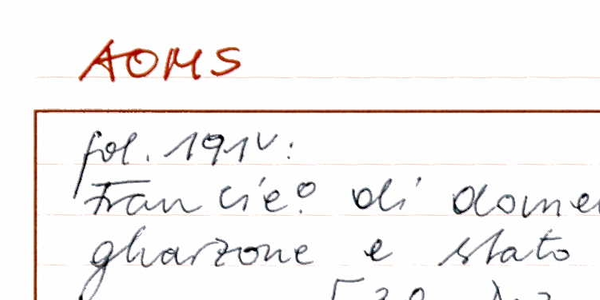 AOMS
fol. 191v:
Francie? di dome
gharzone e stato